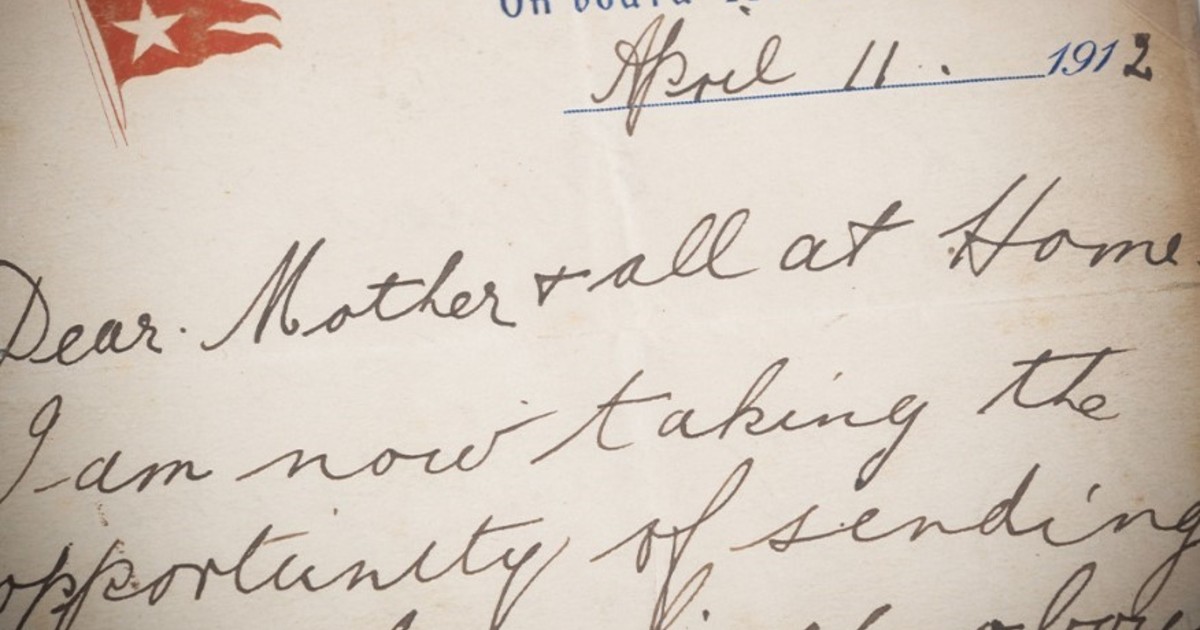 On board
April 11. 1912
Dear Mother & all at Home.
I am now taking the
opportunity of sending